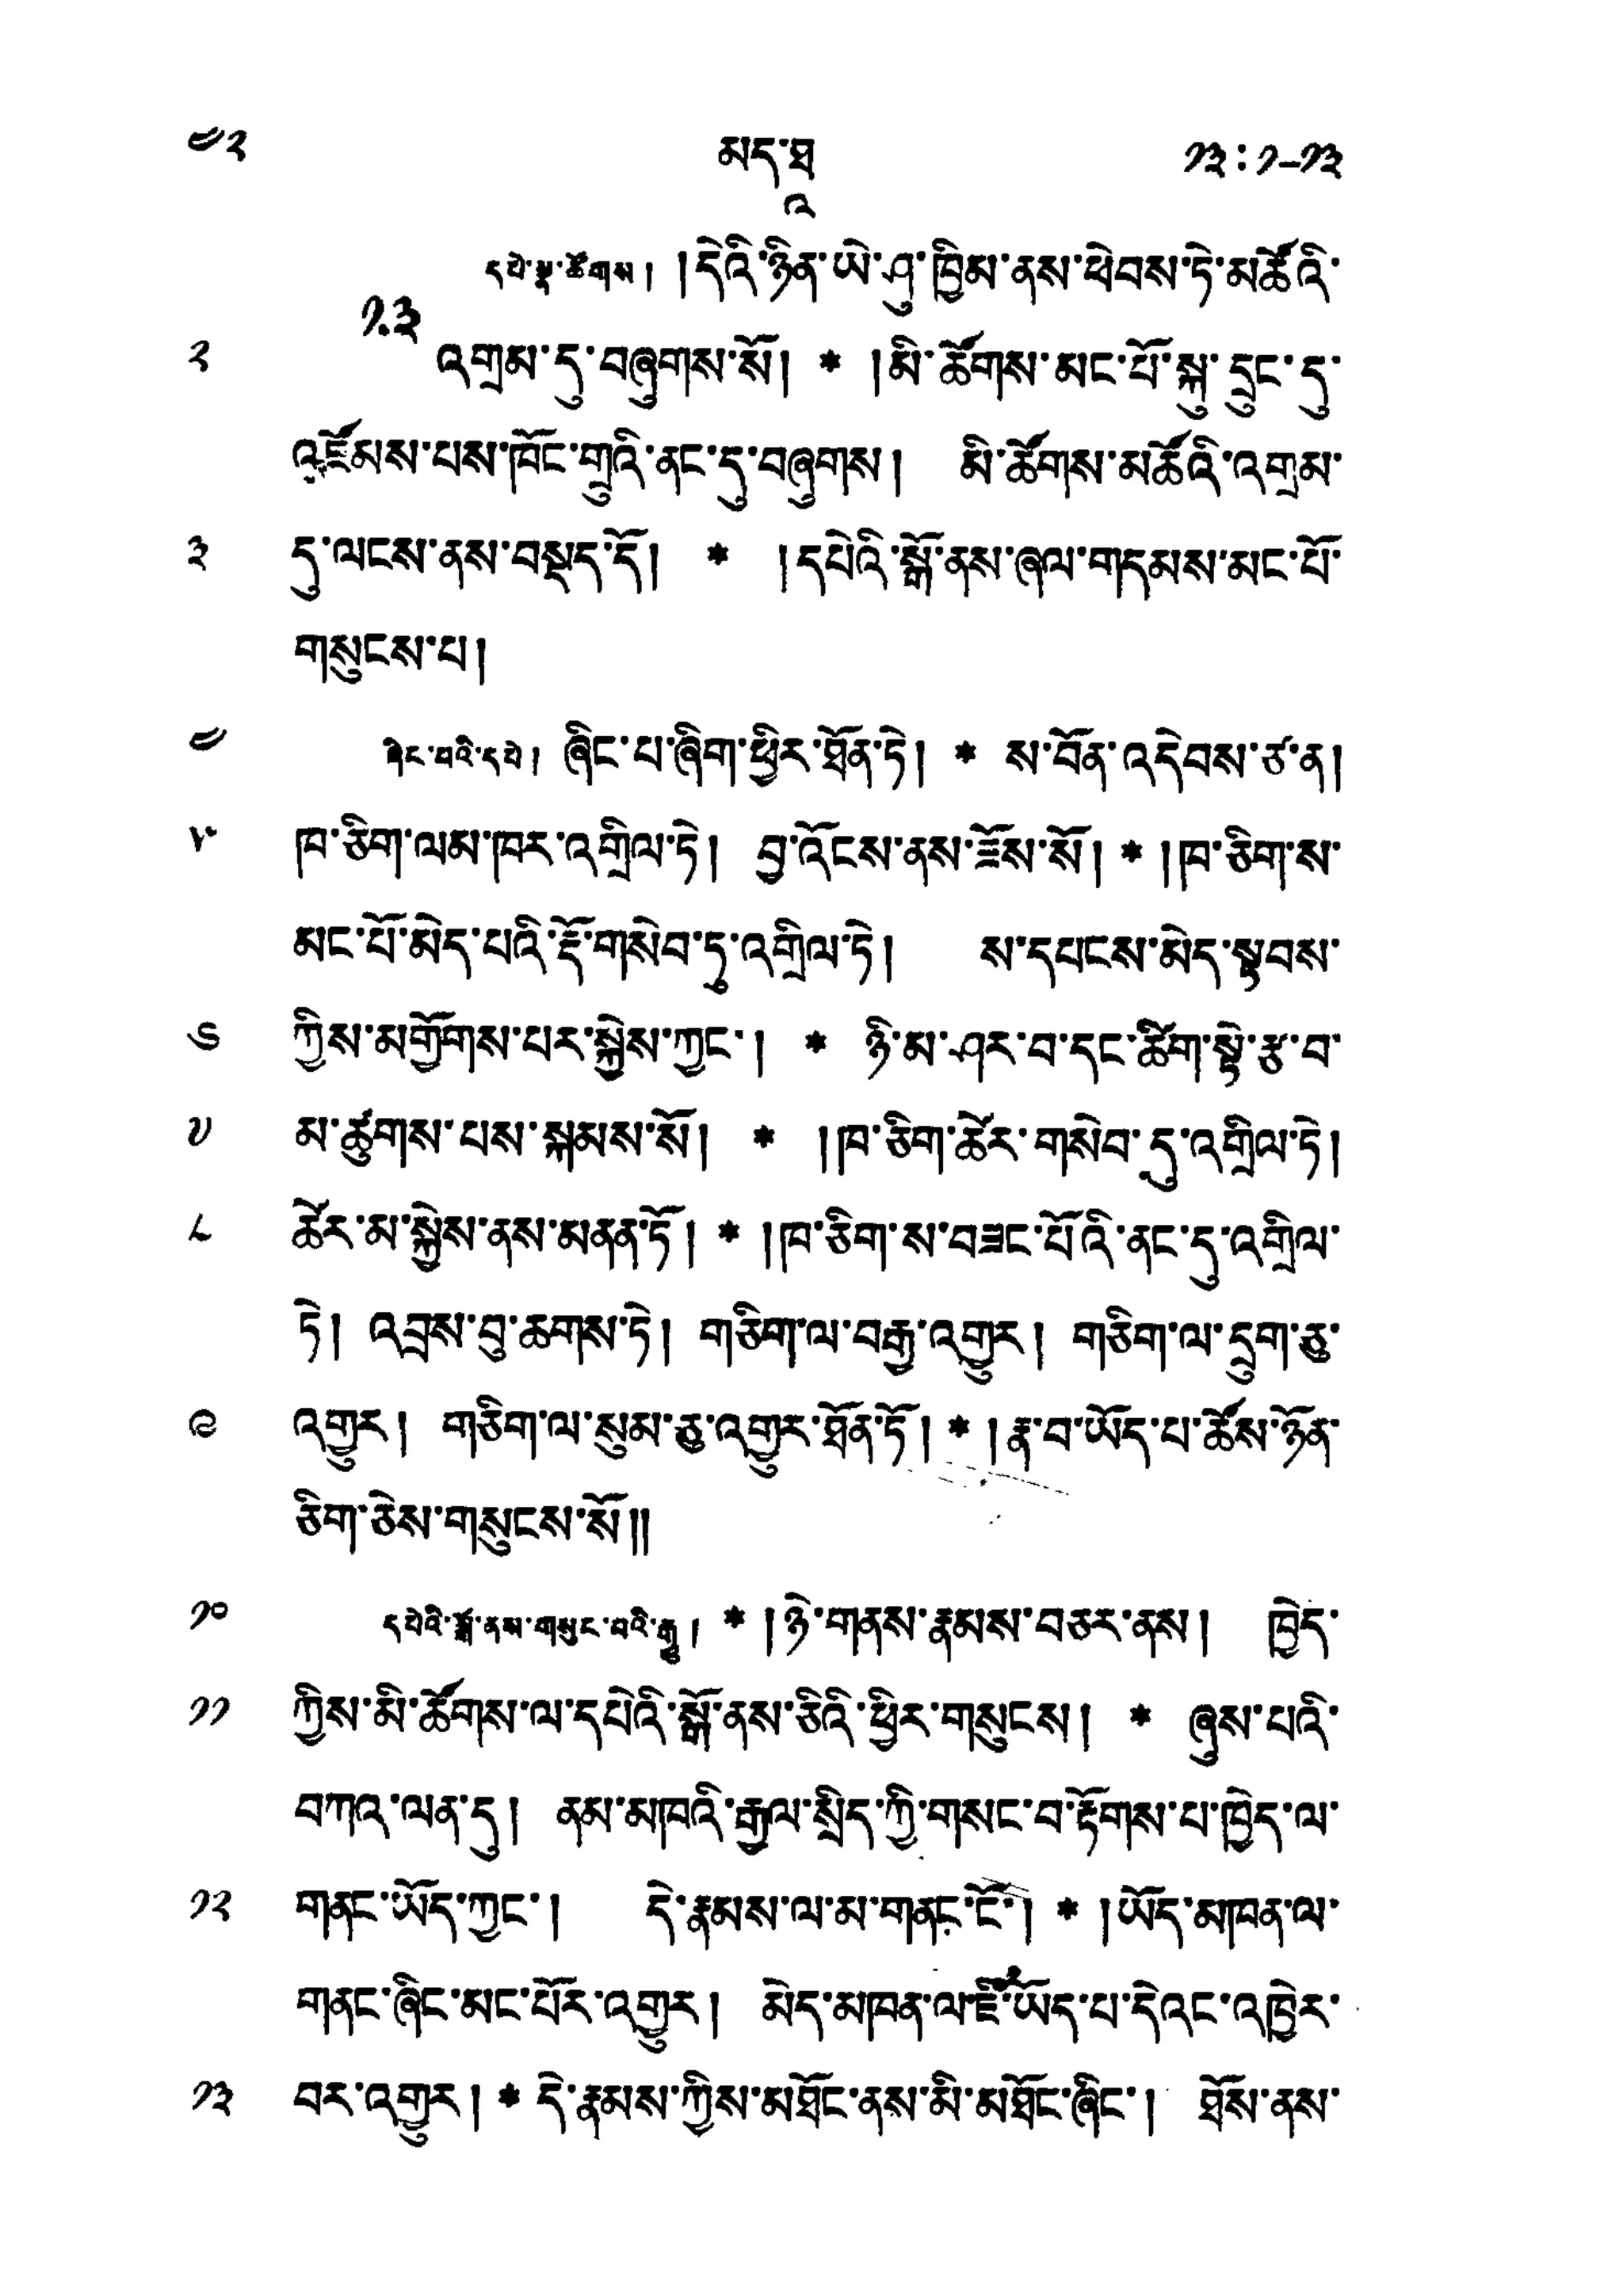 ༤༢ མད་ཐཱ ༡༣:༡-༡༣
དཔེ་སྣ་ཚོགས། །དེའི་ཉིན་ཡེ་ཤུ་ཁྱིམ་ནས་ཕེབས་ཏེ་མཚོའི་
༡༣
༢ འགྲམ་དུ་བཞུགས་སོ། * །མི་ཚོགས་མང་པོ་སྐུ་དྲུང་དུ་
འཛོམས་པས་ཁོང་གྲུའི་ནང་དུ་བཞུགས། མི་ཚོགས་མཚོའི་འགྲམ་
༣ དུ་ལངས་ནས་བསྡད་དོ། * །དཔེའི་སྒོ་ནས་ཞལ་གདམས་མང་པོ་
གསུངས་པ།
༤ ཞིང་པའི་དཔེ། ཞིང་པ་ཞིག་ཕྱིར་ཐོན་ཏེ། * ས་བོན་འདེབས་ཙ་ན།
༥ ཁ་ཅིག་ལམ་ཁར་འགྲིལ་ཏེ། བྱ་འོངས་ནས་ཟོས་སོ། * །ཁ་ཅིག་ས་
མང་པོ་མེད་པའི་རྡོ་གསེབ་དུ་འགྲིལ་ཏེ། ས་དཔངས་མེད་སྟབས་
༦ ཀྱིས་མགྱོགས་པར་སྐྱེས་ཀྱང་། * ཉི་མ་ཤར་བ་དང་ཚིག་སྟེ་རྩ་བ་
༧ མ་ཚུགས་པས་སྐམས་སོ། * །ཁ་ཅིག་ཚེར་གསེབ་དུ་འགྲིལ་ཏེ།
༨ ཚེར་མ་སྐྱེས་ནས་མནན་ཏོ། * །ཁ་ཅིག་ས་བཟང་པོའི་ནང་དུ་འགྲིལ་
ཏེ། འབྲས་བུ་ཆགས་ཏེ། གཅིག་ལ་བརྒྱ་འགྱུར། གཅིག་ལ་དྲུག་ཅུ་
༩ འགྱུར། གཅིག་ལ་སུམ་ཅུ་འགྱུར་ཐོན་ཏོ། * །རྣ་བ་ཡོད་པ་ཚོས་ཉོན་
ཅིག་ཅེས་གསུངས་སོ།།
༡༠ དཔེའི་སྒོ་ནས་གསུང་བའི་རྒྱུ། * །ཉེ་གནས་རྣམས་བཅར་ནས། ཁྱེད་
༡༡ ཀྱིས་མི་ཚོགས་ལ་དཔེའི་སྒོ་ནས་ཅིའི་ཕྱིར་གསུངས། * ཞུས་པའི་
བཀའ་ལན་དུ། ནམ་མཁའི་རྒྱལ་སྲིད་ཀྱི་གསང་བ་རྟོགས་པ་ཁྱེད་ལ་
༡༢ གནང་ཡོད་ཀྱང་། དེ་རྣམས་ལ་མ་གནང་ངོ་། * །ཡོད་མཁན་ལ་
གནང་ཞིང་མང་པོར་འགྱུར། མེད་མཁན་ལ་ཇི་ཡོད་པ་དེའང་འཁྱེར་
༡༣ བར་འགྱུར། * དེ་རྣམས་ཀྱིས་མཐོང་ནས་མི་མཐོང་ཞིང་། ཐོས་ནས་